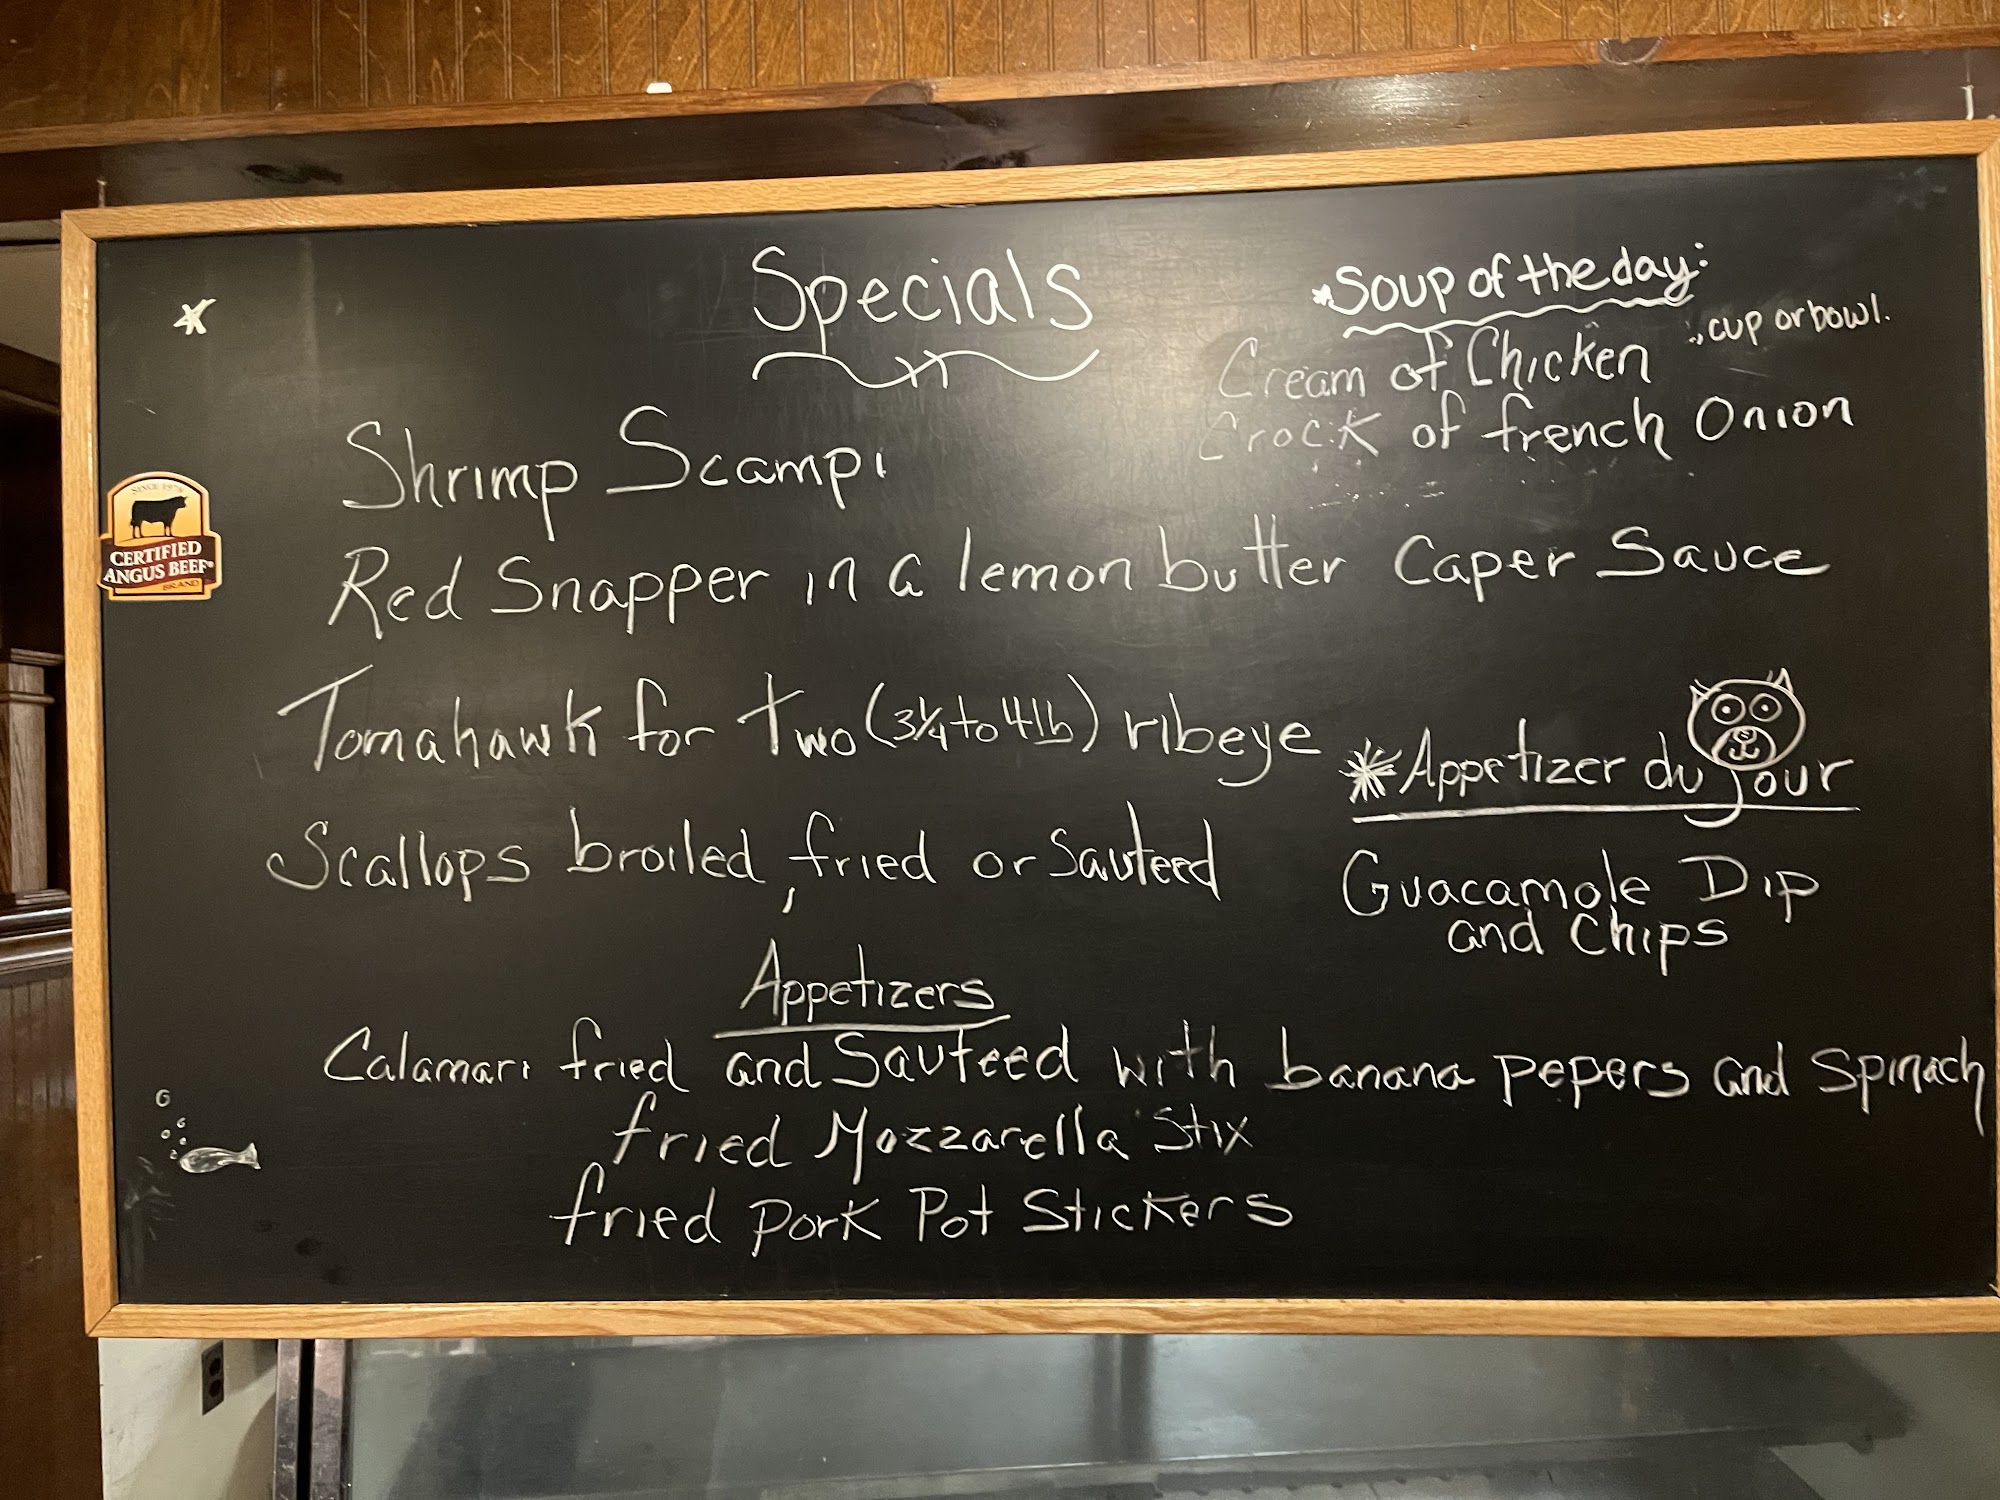 Specials
*Soup of the day:
Cream of Chicken
cup or bowl.
Crock of french Onion
Shrimp Scampi
Red Snapper in a lemon butter Caper Sauce
Tomahawk for two (3¼ to 4lb) ribeye
Scallops broiled, fried or Sauteed
*Appetizer du jour
Guacamole Dip
and Chips
Appetizers
Calamari fried and Sauteed with banana pepers and Spinach
fried Mozzarella Stix
fried pork Pot Stickers
SINCE 1978
CERTIFIED
ANGUS BEEF®
BRAND